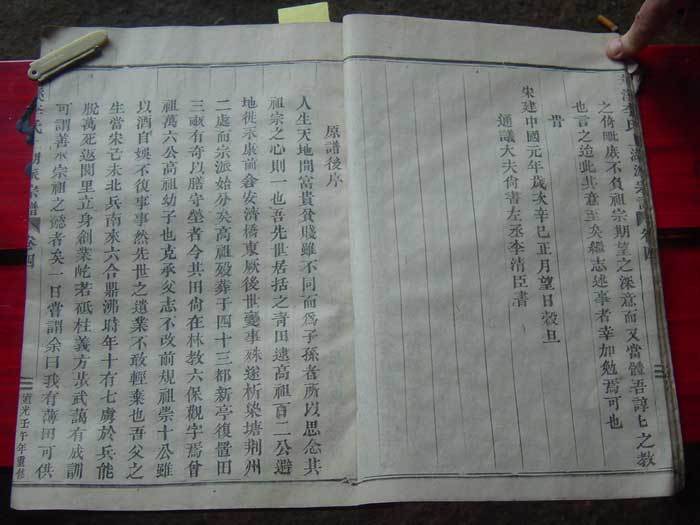 之倚毗庶不負祖宗期望之深意而又當體吾諄匕之教
也言之迨此其意至矣繼志述事者幸加勉焉可也
旹
宋建中國元年歲次辛巳正月望日穀旦
通議大夫尙書左丞李清臣書
原譜後序
人生天地間富貴貧賤雖不同而爲子孫者所以思念其
祖宗之心則一也吾先世居括之青田逮高祖百二公避
地徙永康前倉安濟橋東厥後世變事殊遂析築塘荆州
二處而宗派始分矣高祖歿葬于四十三都新亭復置田
三畝有奇以膳守塋者今其田尙在林教六保觀字焉曾
祖萬六公高祖幼子也克承父志不改前規祖崇十公雖
以酒自娛不復事事然先世之遺業不敢輕棄也吾父之
生當宋己未北兵南來六合鼎沸時年十有七虜於兵能
脫萬死返閭里立身創業屹若砥柱義方蓺武藹有成訓
可謂善承宗祖之德者矣一日嘗謂余曰我有薄田可供
宗譜
卷四
道光壬午年重修